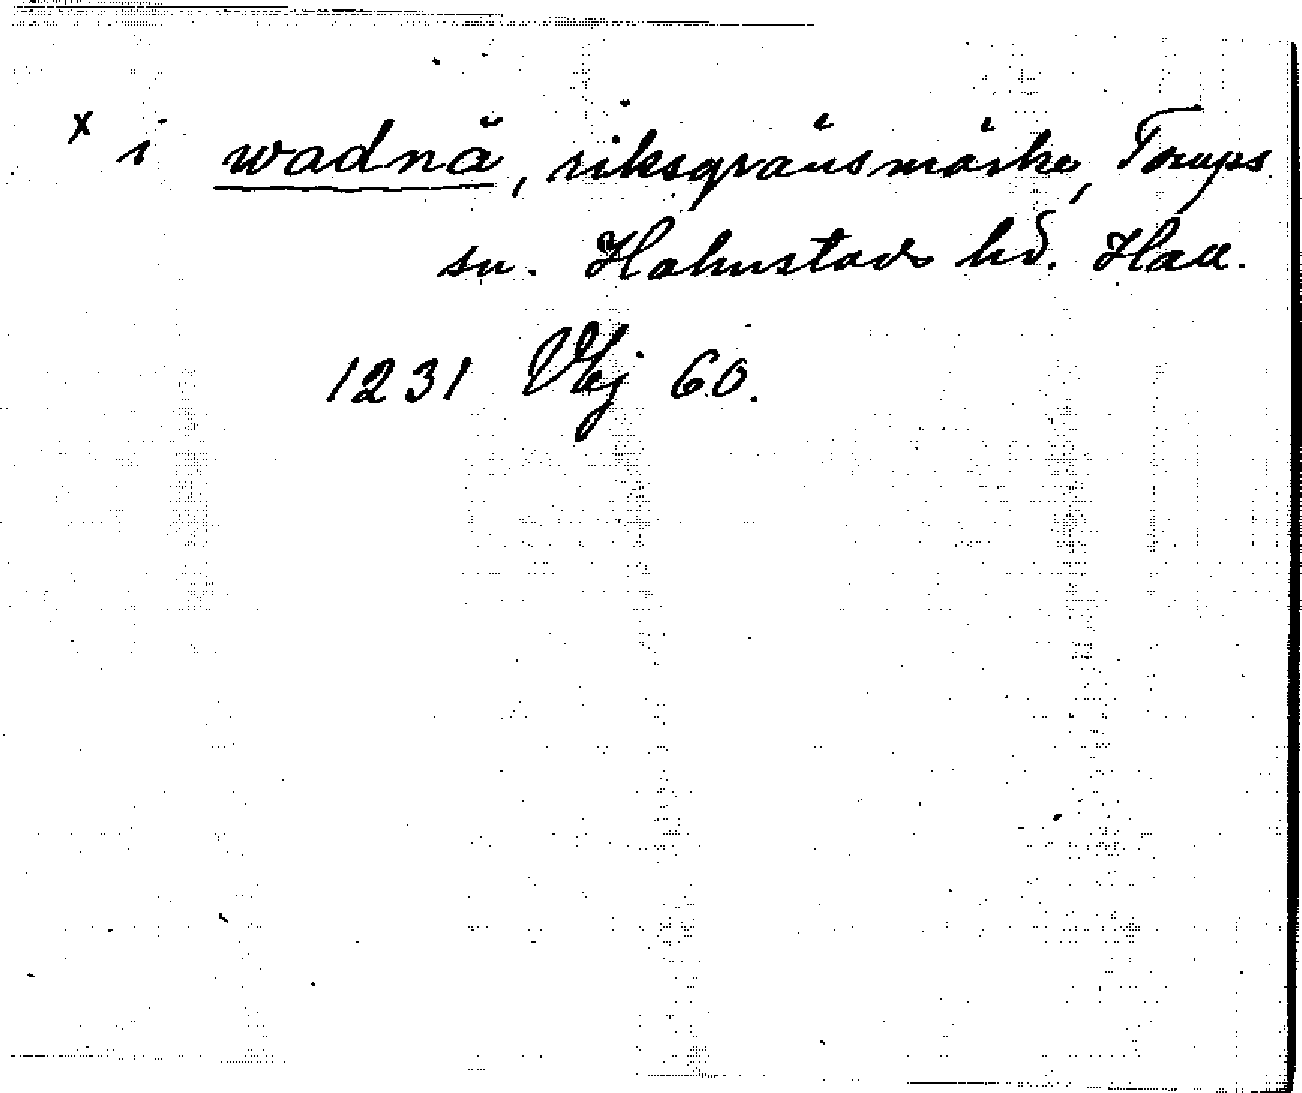 x i wadnä, riksgränsmärke, Torups
sn. Halmstads hd. Hall.
1231 VHj 60.